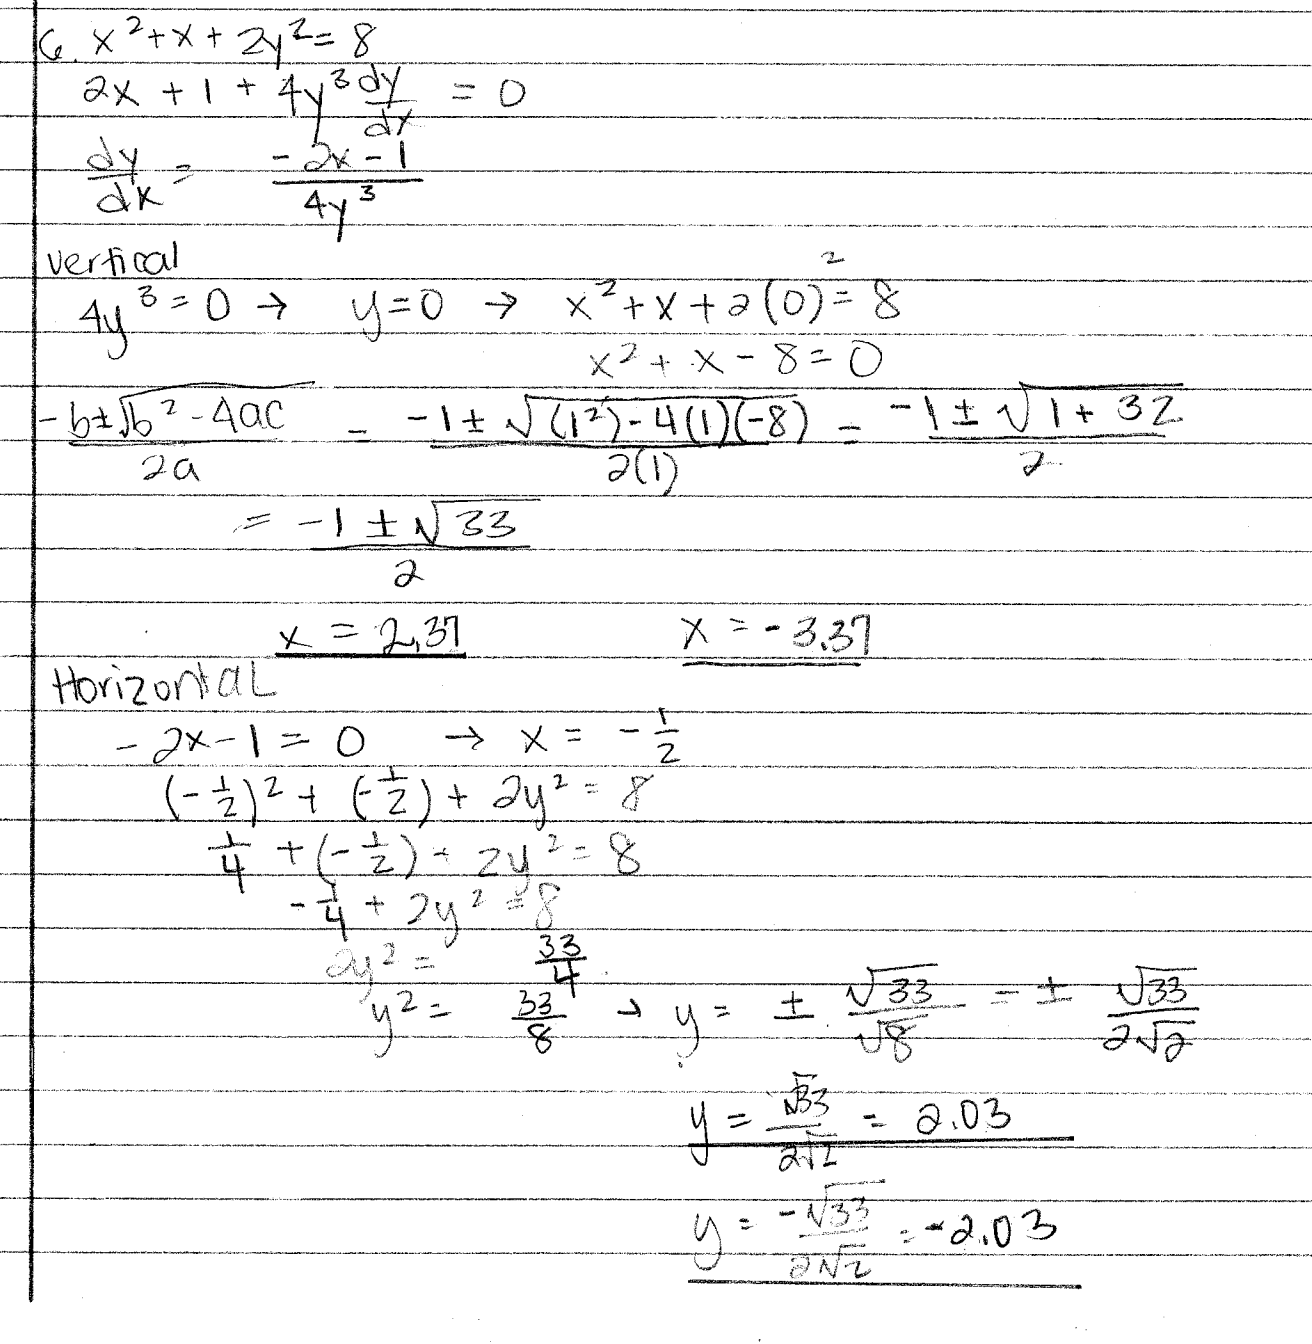 6. x² + x + 2y² = 8
2x + 1 + 4y³ dy/dx = 0
dy/dx = (-2x - 1)/(4y³)
vertical
4y³ = 0 → y = 0 → x² + x + 2(0)² = 8
x² + x - 8 = 0
(-b ± √(b² - 4ac))/(2a) = (-1 ± √((1²) - 4(1)(-8)))/(2(1)) = (-1 ± √(1 + 32))/2
= (-1 ± √33)/2
x = 2.37 x = -3.37
Horizontal
-2x - 1 = 0 → x = -1/2
(-1/2)² + (-1/2) + 2y² = 8
1/4 + (-1/2) + 2y² = 8
-1/4 + 2y² = 8
2y² = 33/4
y² = 33/8 → y = ± √33/√8 = ± √33/(2√2)
y = √33/(2√2) = 2.03
y = -√33/(2√2) = -2.03